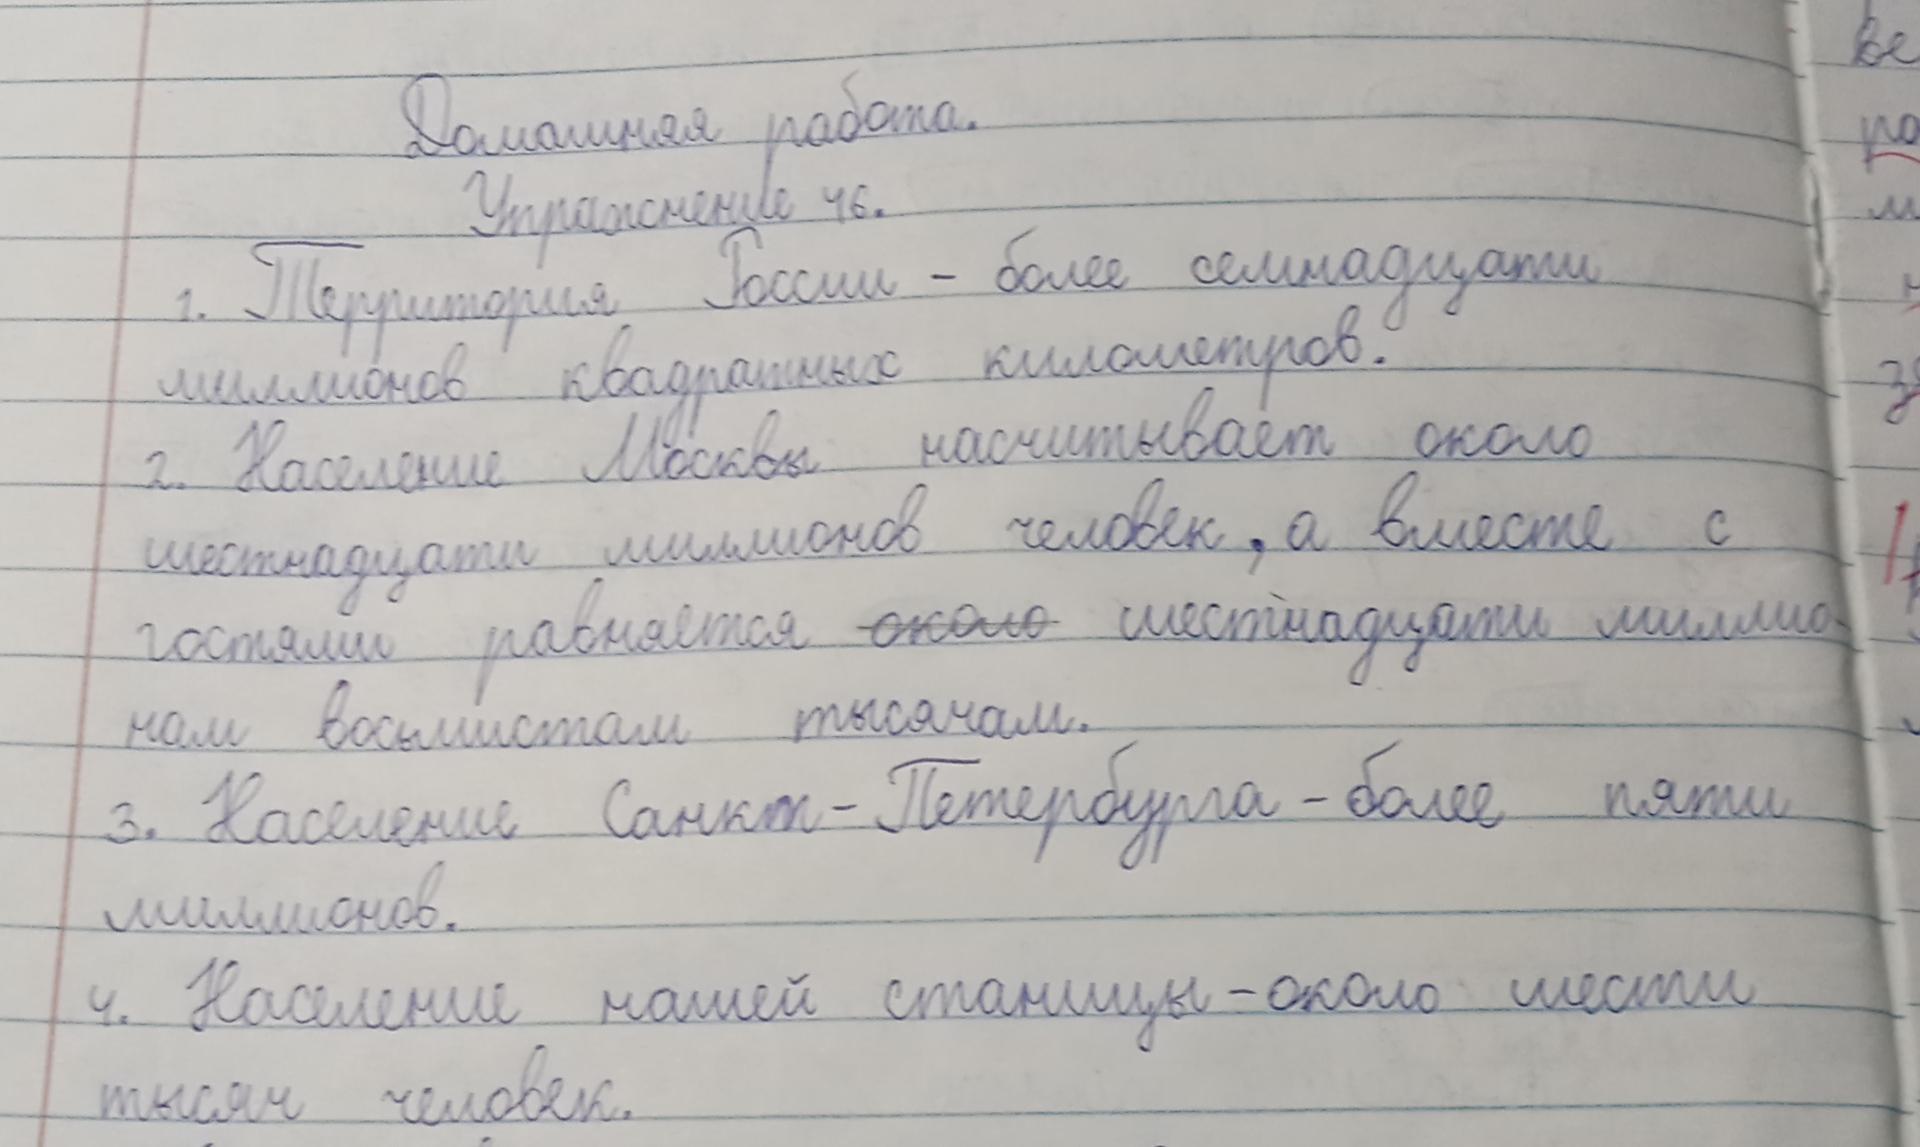 Домашняя работа.
Упражнение 46.
1. Территория России - более семнадцати
миллионов квадратных километров.
2. Население Москвы насчитывает около
шестнадцати миллионов человек, а вместе с
гостями равняется около шестнадцати миллио-
нам восьмистам тысячам.
3. Население Санкт-Петербурга - более пяти
миллионов.
4. Население нашей станицы - около шести
тысяч человек.